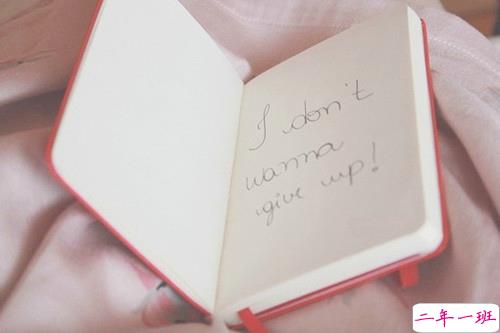 I don't
wanna
give up!
二年一班